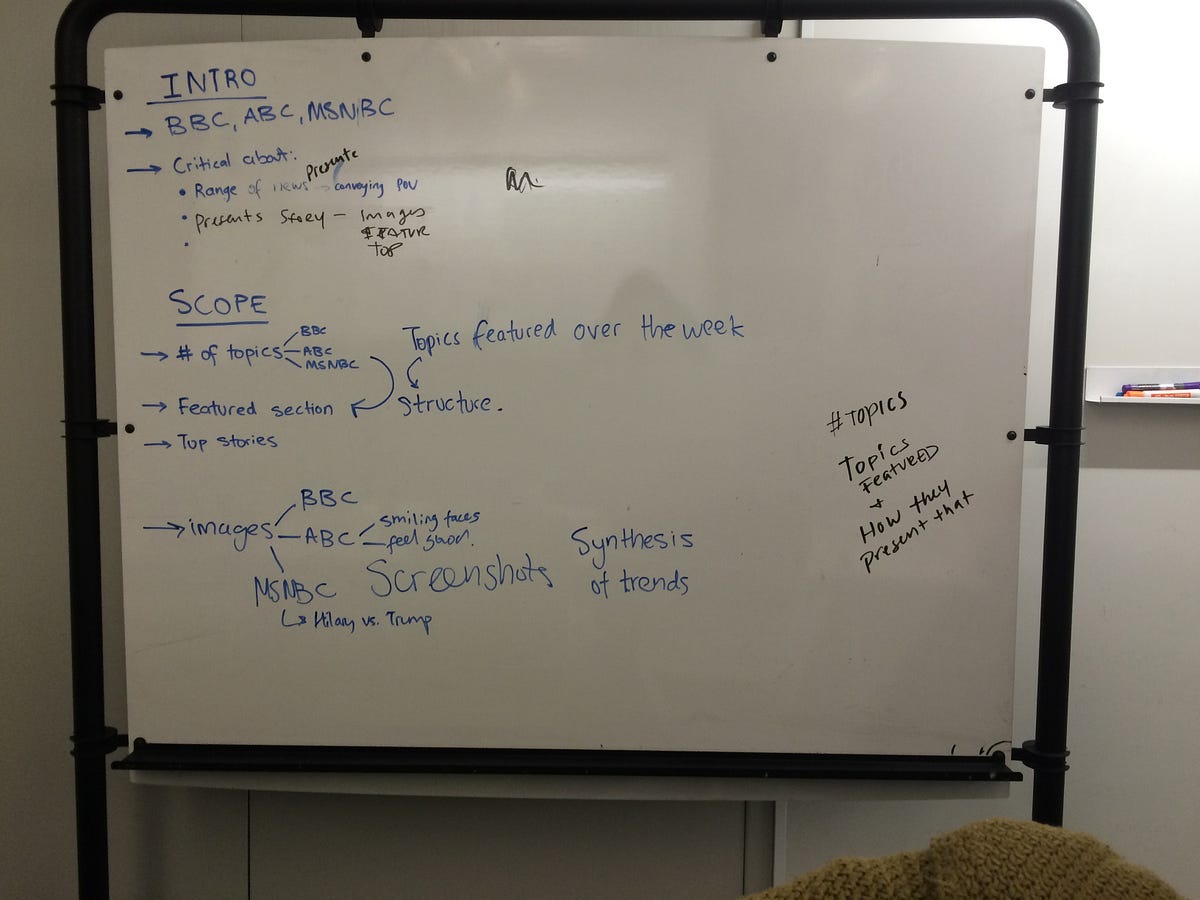 INTRO
→ BBC, ABC, MSNBC
→ Critical about:
Presente
• Range of news → conveying POV
• Presents Story — Images
FEATUR
TOP
SCOPE
→ # of topics
BBC
ABC
MSNBC
Topics featured over the week
→ Featured section
Structure.
→ Top stories
→ images
BBC
ABC
smiling faces
feel good.
MSNBC
↳ Hilary vs. Trump
Screenshots
Synthesis
of trends
# TOPICS
TOPICS
FEATURED
+
How they
present that